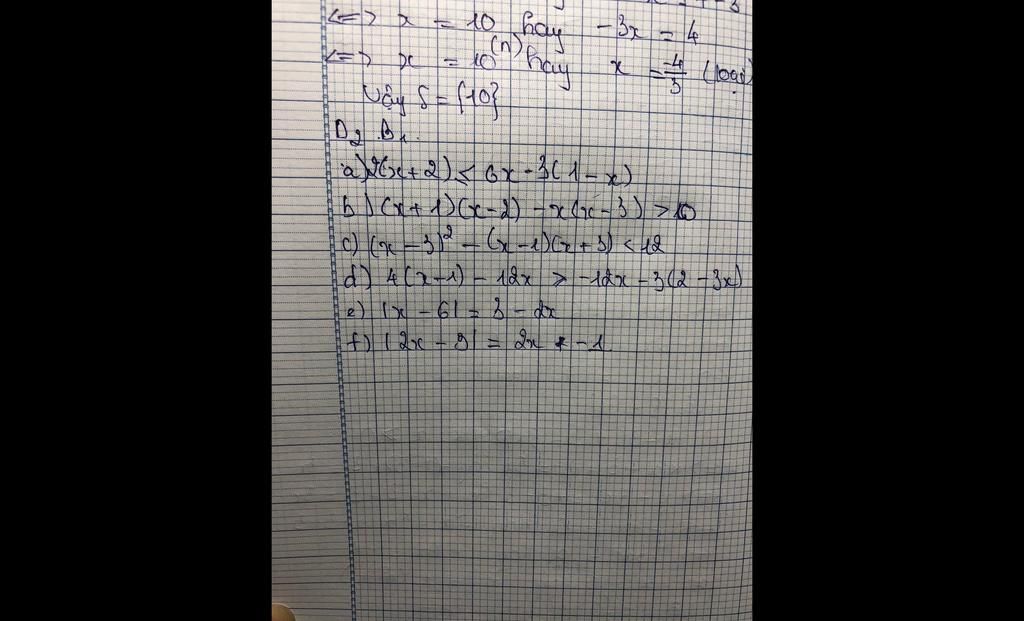 <=> x = 10 hay -3x = 4
<=> x = 10 (n) hay x = -4/3 (loại)
Vậy S = {10}
D2 B1.
a) 2(x+2) < 6x - 3(1-x)
b) (x+1)(x-2) - x(x-3) > 10
c) (x-3)² - (x-1)(x+3) < 12
d) 4(x-1) - 12x > -12x - 3(2-3x)
e) |x-6| = 3 - 2x
f) |2x-9| = 2x -1